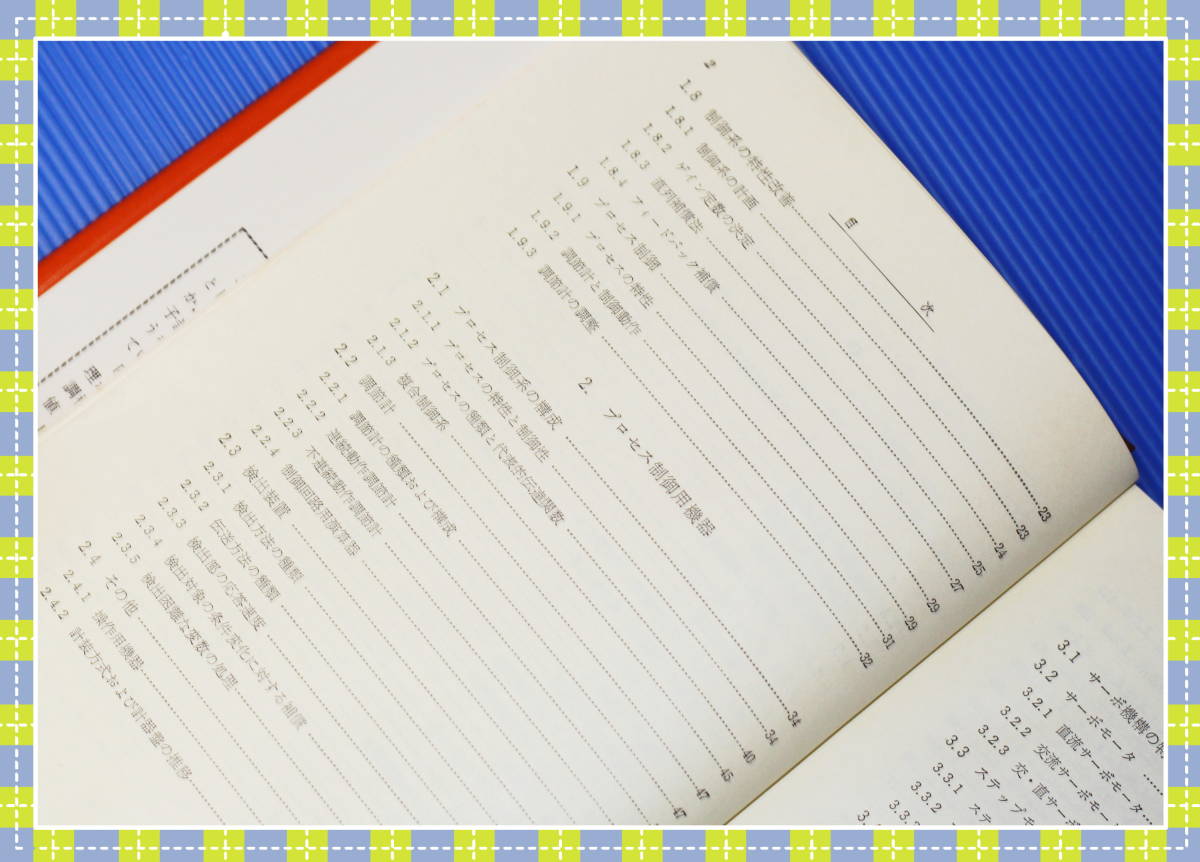 2
目次
1.8 制御系の特性改善 23
1.8.1 制御系の計画 23
1.8.2 ゲイン定数の決定 24
1.8.3 直列補償法 25
1.8.4 フィードバック補償 27
1.9 プロセス制御 29
1.9.1 プロセスの特性 29
1.9.2 調節計と制御動作 31
1.9.3 調節計の調整 32
2. プロセス制御用機器
2.1 プロセス制御系の構成 34
2.1.1 プロセスの特性と制御性 34
2.1.2 プロセスの種類と代表的伝達関数 40
2.1.3 複合制御系 45
2.2 調節計 47
2.2.1 調節計の種類および構成 47
2.2.2 連続動作調節計
2.2.3 不連続動作調節計
2.2.4 制御回路用演算器
2.3 検出装置
2.3.1 検出方法の種類
2.3.2 伝送方法の種類
2.3.3 検出部の応答速度
2.3.4 検出対象の条件変化に対する補償
2.3.5 検出困難な変数の処理
2.4 その他
2.4.1 操作用機器
2.4.2 計装方式および計器盤の推移
3.1 サーボ機構の
3.2 サーボモータ
3.2.1 直流サーボモータ
3.2.2 交流サーボモー
3.2.3 交・直サーボ
3.3 ステップモ
3.3.1 ステ
3.3.2
理
調
値